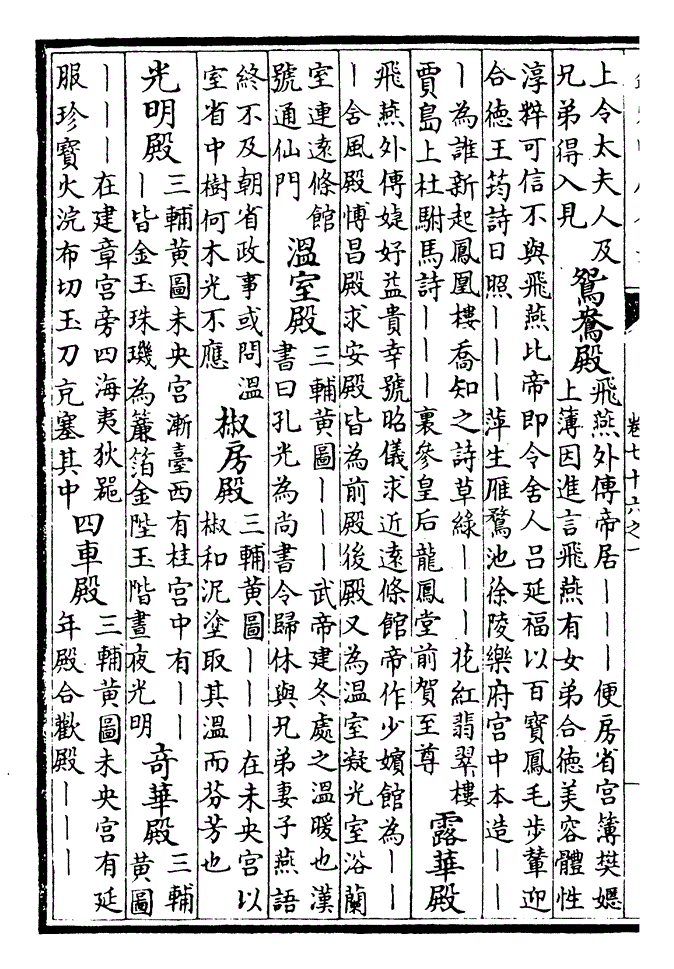 上令太夫人及
兄弟得入見
鴛鴦殿
飛燕外傳帝居———便房省宮簿樊嫕
上簿因進言飛燕有女弟合德美容體性
淳粹可信不與飛燕比帝即令舍人呂延福以百寶鳳毛步輦迎
合德王筠詩日照———萍生雁鶩池徐陵樂府宮中本造——
—為誰新起鳳凰樓喬知之詩草綠———花紅翡翠樓
賈島上杜駙馬詩———裏參皇后龍鳳堂前賀至尊
露華殿
飛燕外傳婕好益貴幸號昭儀求近遠條館帝作少嬪館為——
—舍風殿愽昌殿求安殿皆為前殿後殿又為溫室凝光室浴蘭
室連遠條館
號通仙門
溫室殿
三輔黃圖———武帝建冬處之溫暖也漢
書曰孔光為尚書令歸休與兄弟妻子燕語
終不及朝省政事或問溫
室省中樹何木光不應
椒房殿
三輔黃圖———在未央宮以
椒和泥塗取其溫而芬芳也
光明殿
三輔黃圖未央宮漸臺西有桂宮中有——
—皆金玉珠璣為簾箔金陛玉階晝夜光明
奇華殿
三輔
黃圖
———在建章宮旁四海夷狄器
服珍寶火浣布切玉刀充塞其中
四車殿
三輔黃圖未央宮有延
年殿合歡殿———
卷七十六之一